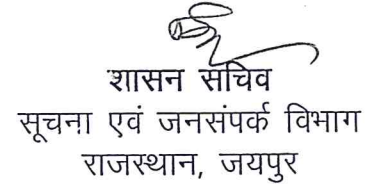 शासन सचिव
सूचना एवं जनसंपर्क विभाग
राजस्थान, जयपुर